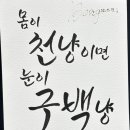 몸이
천냥이면
눈이
구백냥